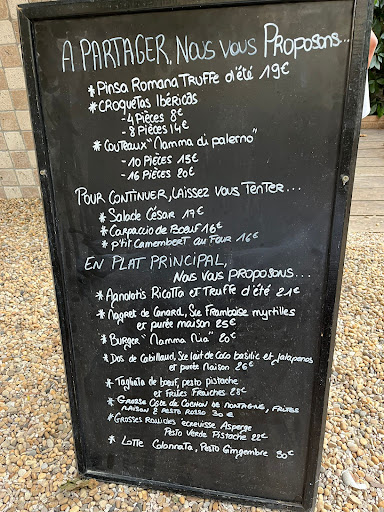 A PARTAGER, Nous Vous Proposons...
* Pinsa Romana Truffe d'été 19€
* CROQUETAS IBÉRICAS
- 4 Pièces 8€
- 8 Pièces 14€
* Couteaux "Mamma di palerno"
- 10 Pièces 15€
- 16 Pièces 20€
POUR CONTINUER, LAISSEZ VOUS TENTER...
* Salade César 17€
* Carpaccio de Bœuf 16€
* P'tit Camembert au Four 16€
EN PLAT PRINCIPAL,
Nous vous proposons...
* Agnolotis Ricotta et Truffe d'été 21€
* Magret de Canard, Sce Framboise myrtilles
et purée maison 25€
* Burger "Mamma Mia" 20€
* Dos de Cabillaud, Sce lait de Coco basilic et Jalapenos
et purée Maison 26€
* Tagliata de bœuf, pesto pistache
et Frites Fraîches 28€
* GROSSE Côte de COCHON DE MONTAGNE, FRITES
MAISON & PESTO ROSSO 30€
* GROSSES Raviolis écrevisse Asperge
Pesto Verde Pistache 22€
* Lotte Colonnata, Pesto Gingembre 30€